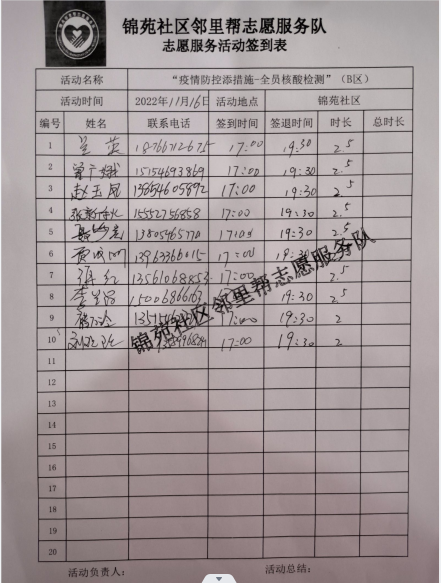 锦苑社区邻里帮志愿服务队
志愿服务活动签到表
活动名称 “疫情防控添措施-全员核酸检测”(B区)
活动时间 2022年11月16日 活动地点 锦苑社区
编号 姓名 联系电话 签到时间 签退时间 时长 总时长
1 18766712675 17:00 19:30 2.5
2 15154693869 17:00 19:30 2.5
3 赵玉凤 13854605892 17:00 19:30 2.5
4 15552756858 17:00 19:30 2.5
5 13805465770 17:00 19:30 2.5
6 13963366015 17:00 19:30
7 13561068853 17:00 2.5
8 15006866163 19:30 2.5
9 17:00 19:30 2
10 17:00 19:30 2
11
12
13
14
15
16
17
18
19
20
活动负责人: 活动总结:
锦苑社区邻里帮志愿服务队